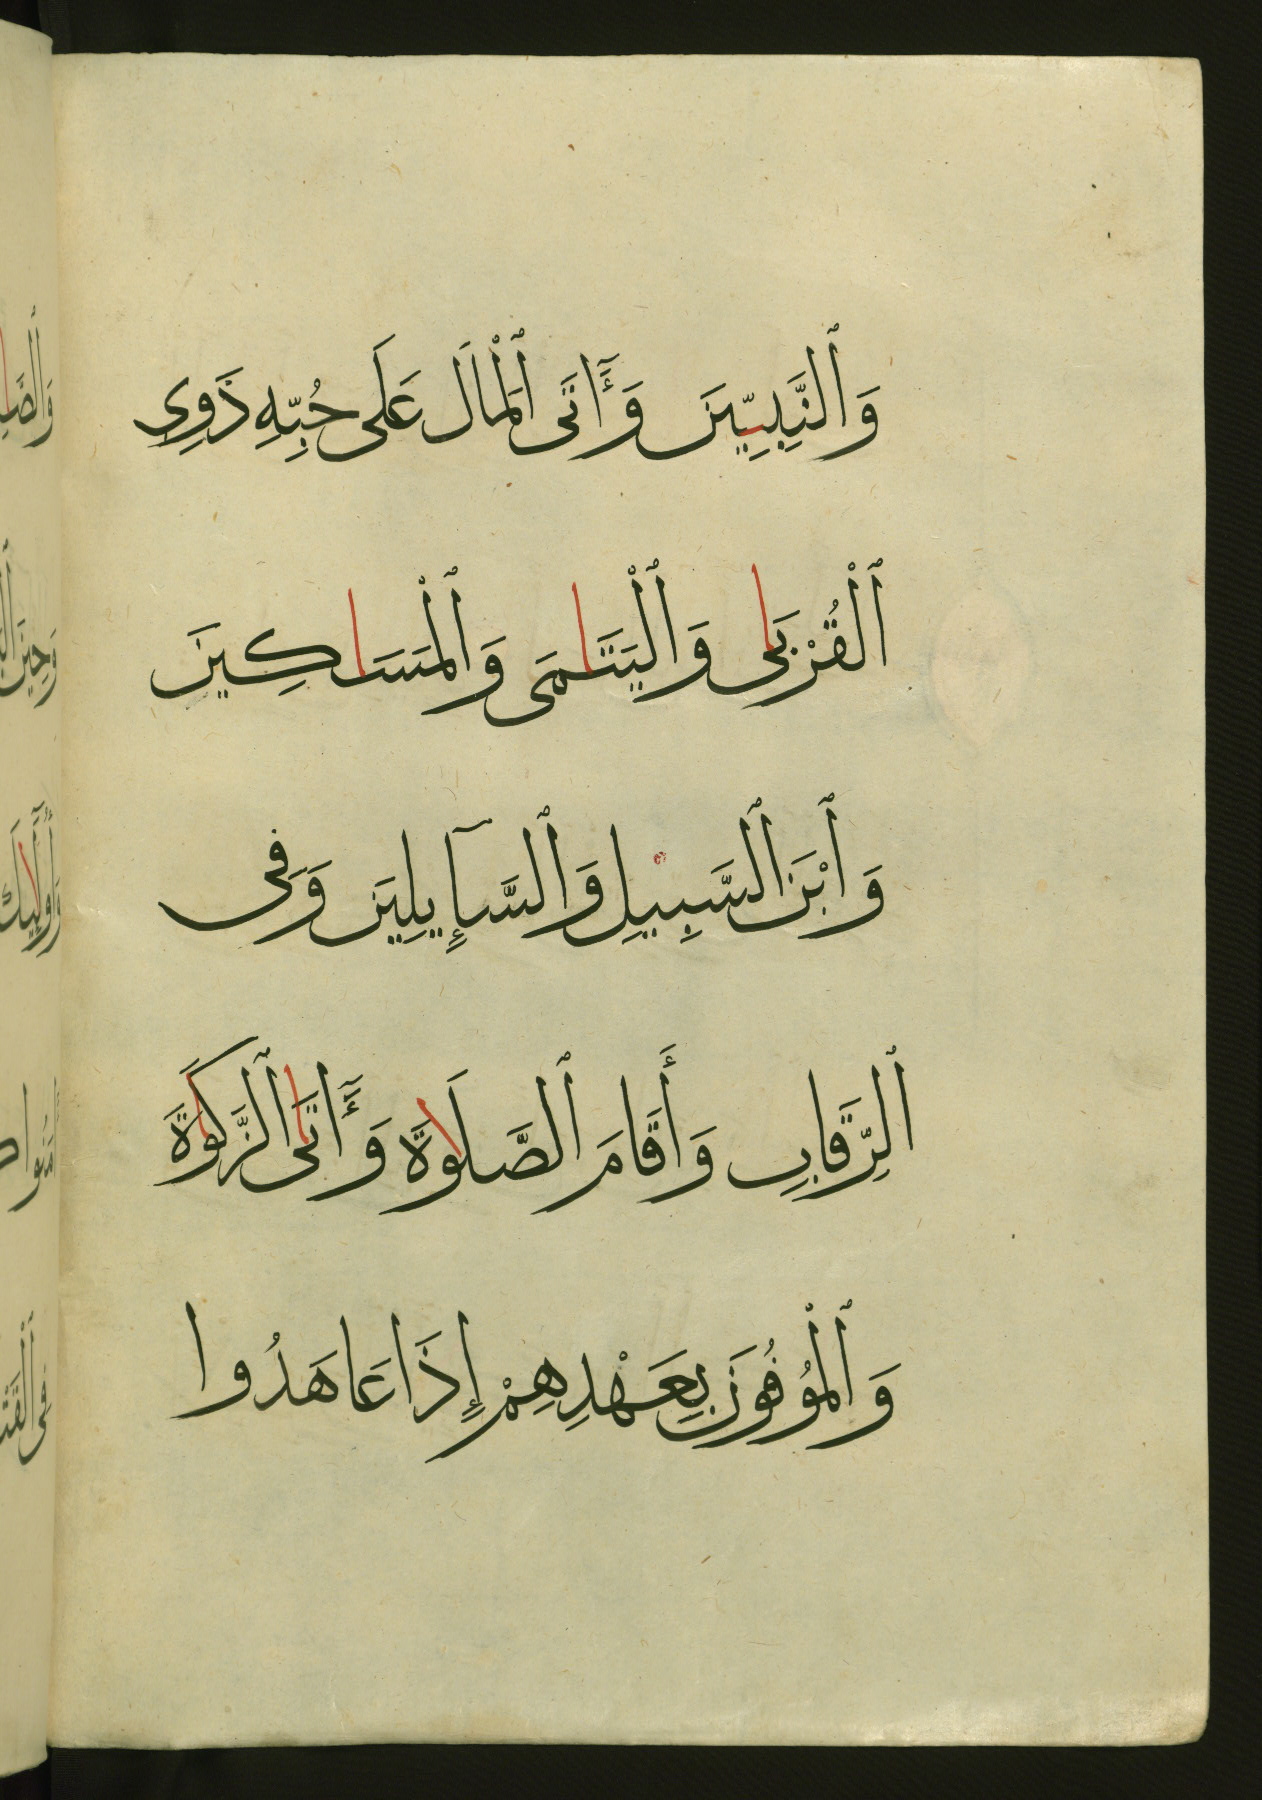 وَٱلنَّبِيِّينَ وَءَاتَى ٱلْمَالَ عَلَى حُبِّهِ ذَوِى
ٱلْقُرْبَىٰ وَٱلْيَتَـٰمَى وَٱلْمَسَاكِينَ
وَٱبْنَ ٱلسَّبِيلِ وَٱلسَّآئِلِينَ وَفِى
ٱلرِّقَابِ وَأَقَامَ ٱلصَّلَوٰةَ وَءَاتَى ٱلزَّكَوٰةَ
وَٱلْمُوفُونَ بِعَهْدِهِمْ إِذَا عَاهَدُوا